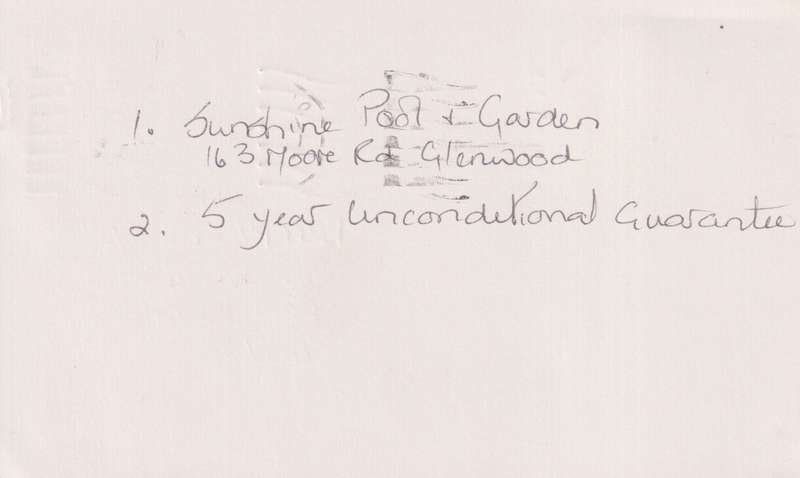 1. Sunshine Pool & Garden
163 Moore Rd Glenwood
2. 5 year Unconditional Guarantee